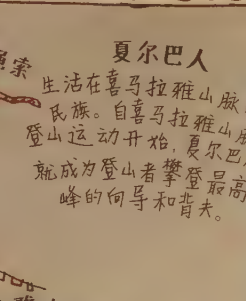 夏尔巴人
索
生活在喜马拉雅山脉
民族。自喜马拉雅山脉
登山运动开始，夏尔巴
就成为登山者攀登最高
峰的向导和背夫。